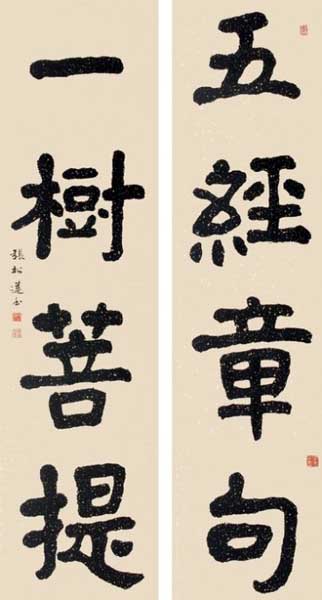 五經章句
一樹菩提
張松蓮書